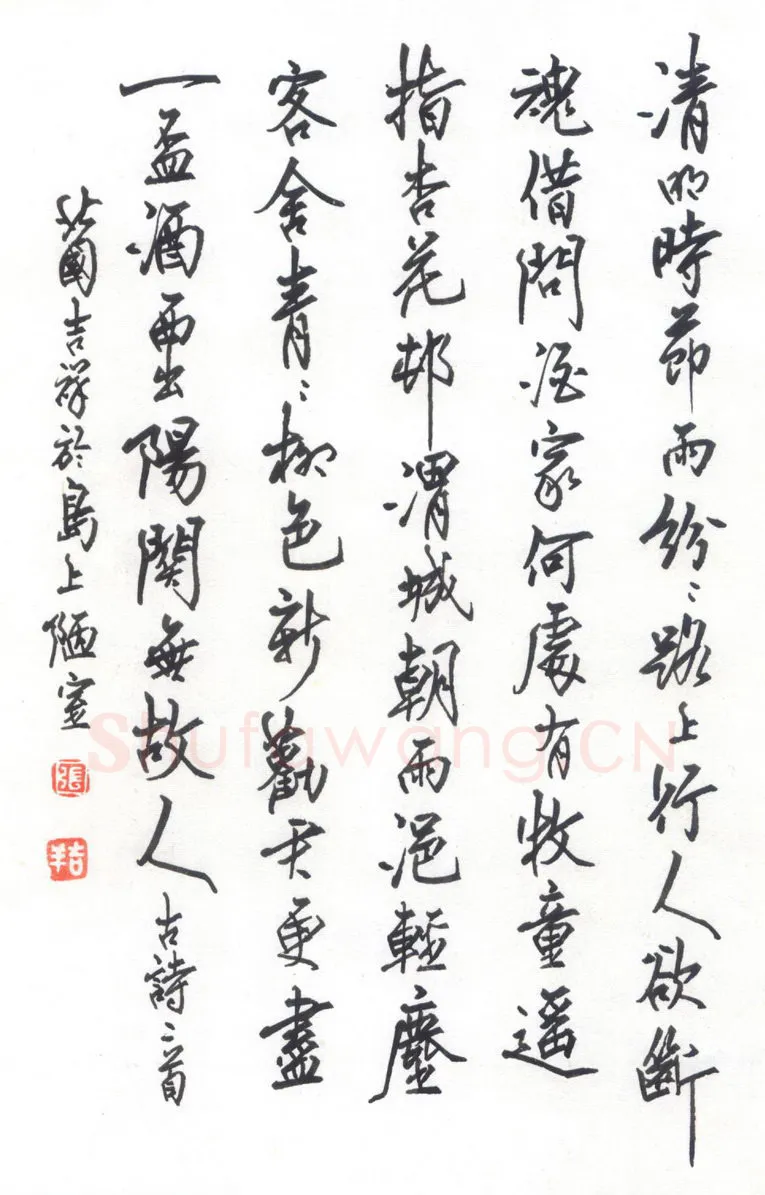 清明時節雨紛〻路上行人欲斷
魂借問酒家何處有牧童遥
指杏花邨渭城朝雨浥輕塵
客舍青〻柳色新勸君更盡
一盃酒西出陽關無故人古詩二首
國吉祥於島上陋室
張
吉羊
Shufawang.CN